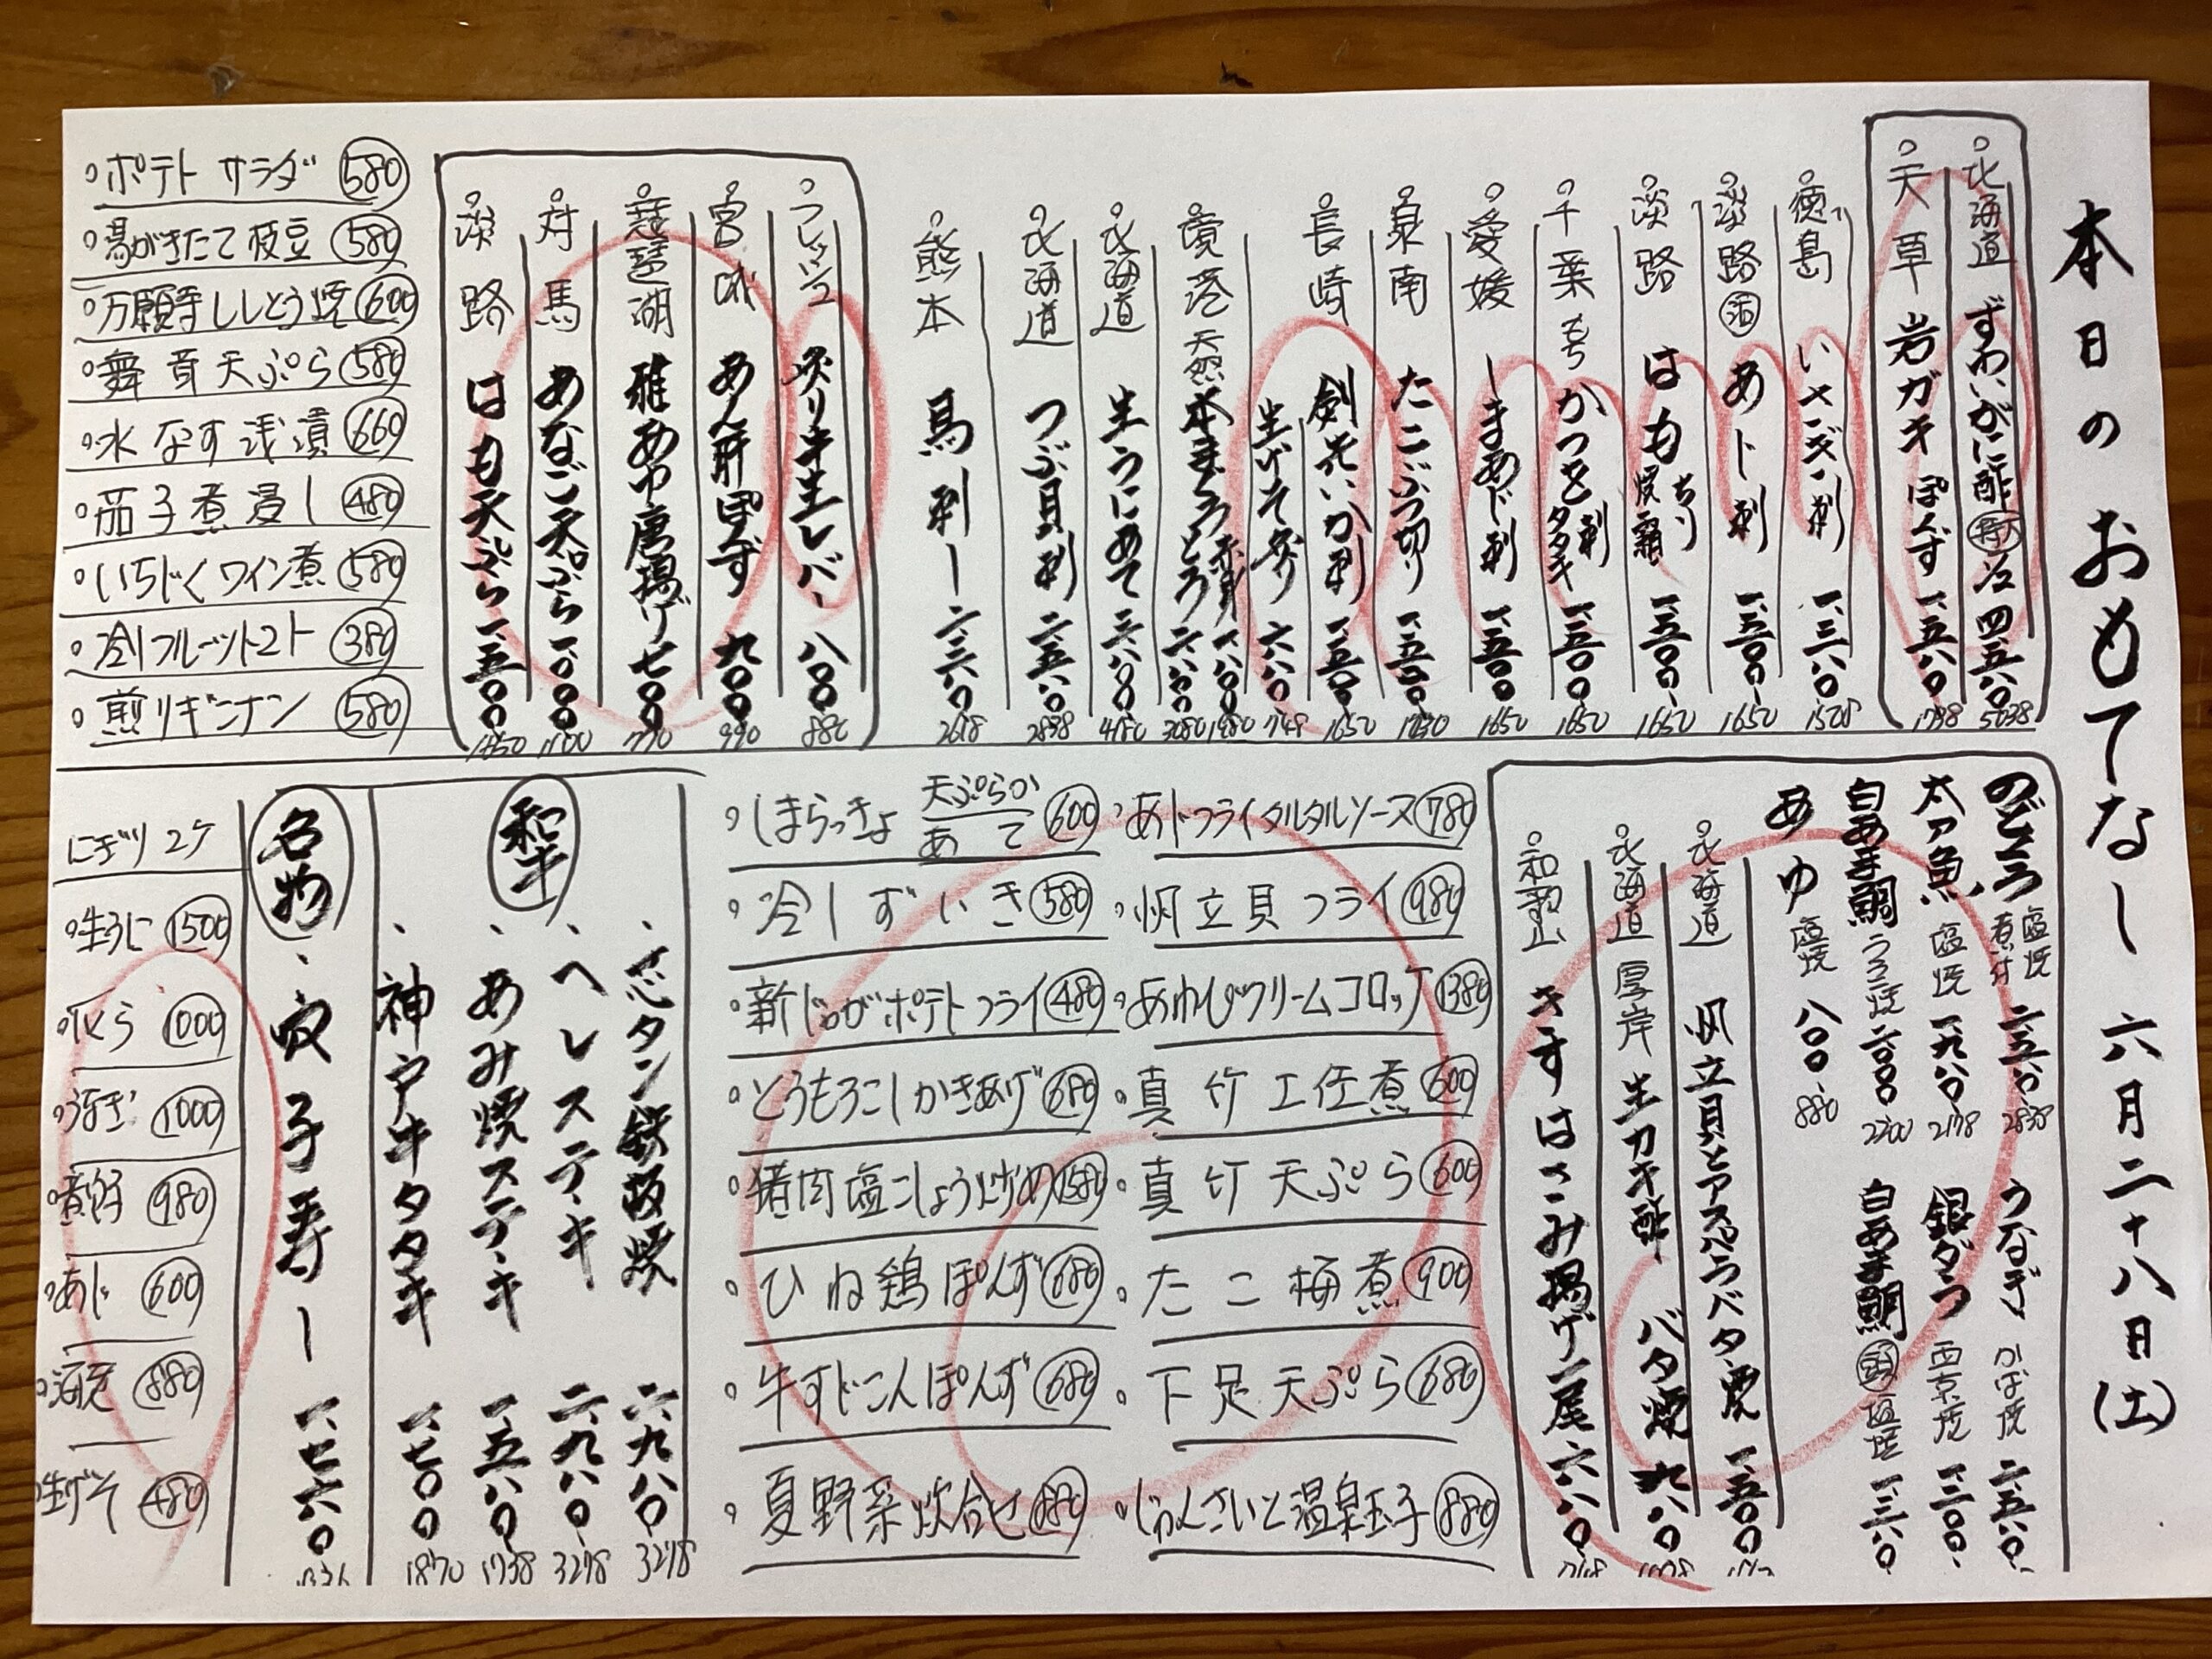 本日のおもてなし 六月二十八日(土)
北海道 ずわいがに酢 四五八〇 5038
天草 岩ガキ ぽんず 一、五八〇 1738
徳島 いさぎ刺 一、三八〇 1508
淡路 活 あじ刺 一、五〇〇 1650
淡路 はも ちり 焼霜 一、五〇〇 1650
千葉 もち かつを 刺 タタキ 一、五〇〇 1650
愛媛 しまあじ刺 一、五〇〇 1650
泉南 たこぶつ切り 一、五〇〇
長崎 剣先いか刺 一、五〇〇 1650
生げそ炙り 六八〇 748
境港 天然 本まぐろ 赤身 一、八〇〇 1980
とろ 二、八〇〇 3080
北海道 生うにあて 三、八〇〇 4180
北海道 つぶ貝刺 二、五八〇 2838
熊本 馬刺し 二、三八〇 2618
フレッシュ 炙り牛生レバー 八〇〇 880
宮城 あん肝ぽんず 九〇〇 990
琵琶湖 稚あゆ唐揚げ 七〇〇 770
対馬 あなご天ぷら 一、〇〇〇 1100
淡路 はも天ぷら 一、五〇〇 1650
ポテトサラダ 580
湯がきたて枝豆 580
万願寺ししとう焼 600
舞茸天ぷら 580
水なす浅漬 660
茄子煮浸し 480
いちじくワイン煮 580
冷しフルーツトマト 380
煎りギンナン 580
のどぐろ 塩焼 煮付 二、五八〇 2838
太刀魚 塩焼 一、九八〇 2178
白あま鯛 うろこ焼 二、〇〇〇 2200
あゆ 塩焼 八〇〇 880
うなぎ かば焼 二、五八〇
銀ダラ 西京焼 一、三〇〇
白あま鯛 頭 塩焼 一、三八〇
北海道 帆立貝とアスパラバター焼 一、五〇〇
北海道 厚岸 生カキ酢 バタ焼 九八〇
和歌山 きすはさみ揚げ 一尾 六八〇
あじフライタルタルソース 780
帆立貝フライ 980
あわびクリームコロッケ 1380
真竹土佐煮 600
真竹天ぷら 600
たこ梅煮 900
下足天ぷら 680
じゅんさいと温泉玉子 880
しまらっきょ 天ぷらか あて 600
冷しずいき 580
新じゃがポテトフライ 480
とうもろこしかきあげ 680
猪肉塩こしょう炒め 1580
ひね鶏ぽんず 680
牛すじこんぽんず 680
夏野菜炊合せ 880
和牛
芯タン鉄板焼 二、九八〇 3278
ヘレステーキ 二、九八〇 3278
あみ焼ステーキ 一、五八〇 1738
神戸牛タタキ 一、七〇〇 1870
名物 穴子寿し 一、七六〇
にぎり2ケ
生うに 1500
いくら 1000
うなぎ 1000
煮穴子 980
あじ 600
海老 880
生げそ 480